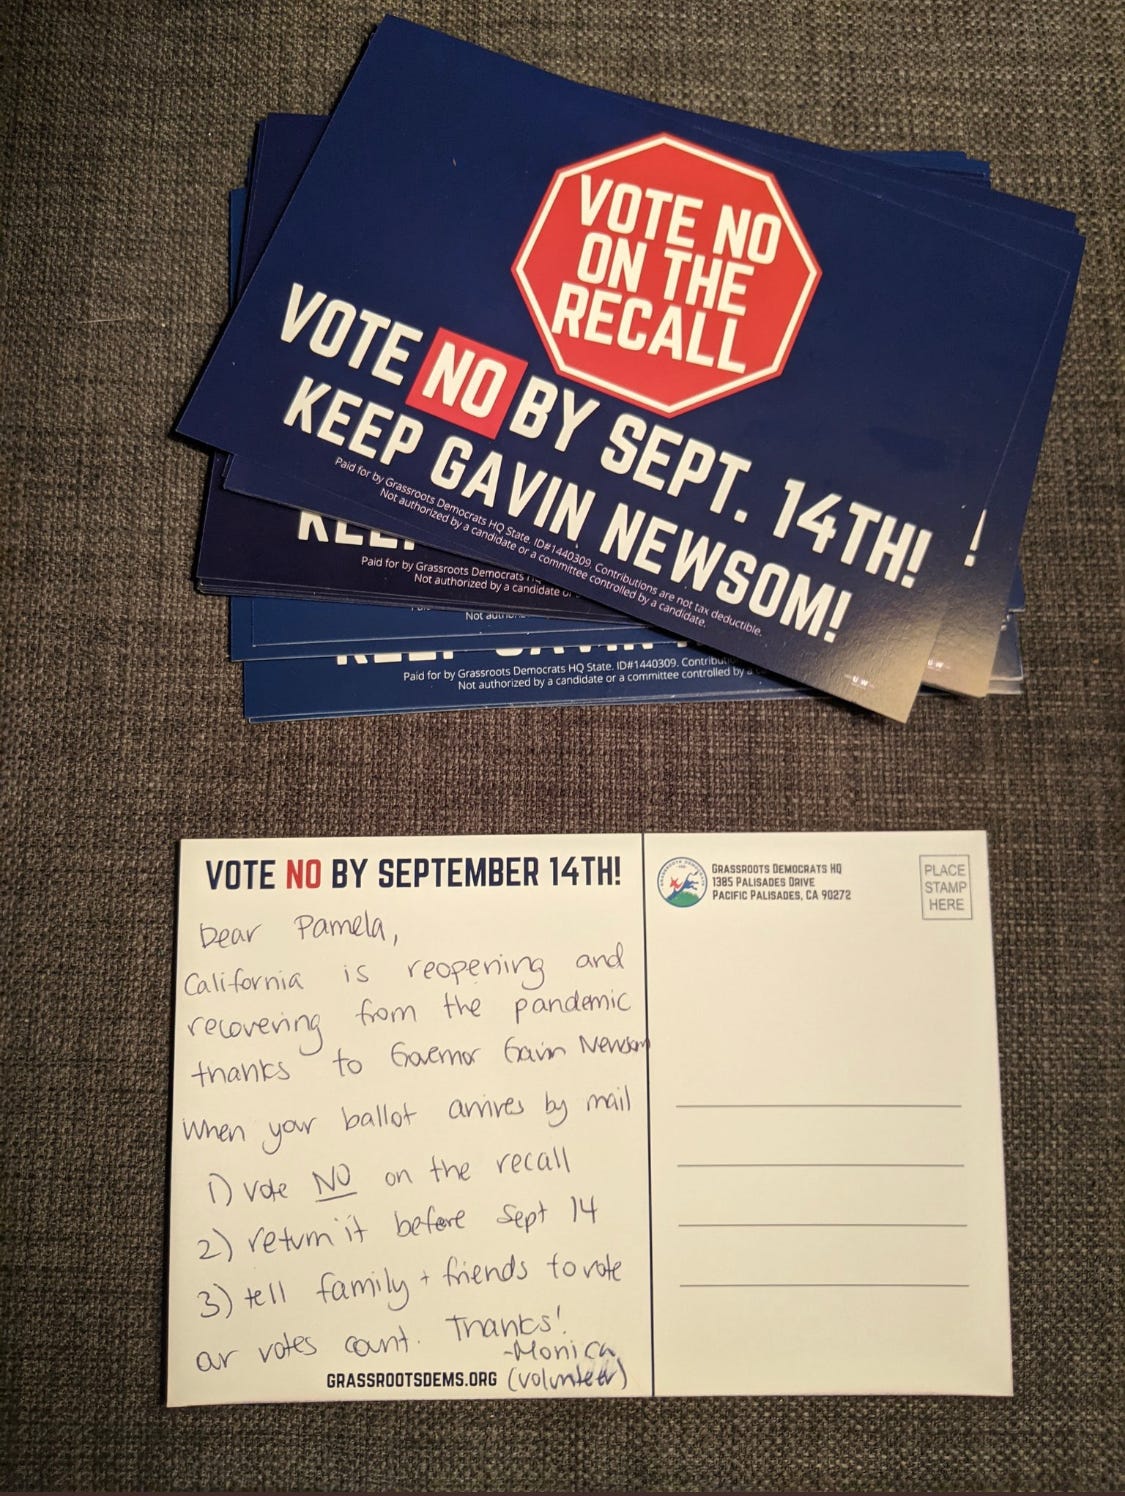 VOTE NO
ON THE
RECALL
VOTE NO BY SEPT. 14TH!
KEEP GAVIN NEWSOM!
Paid for by Grassroots Democrats HQ State. ID#1440309. Contributions are not tax deductible.
Not authorized by a candidate or a committee controlled by a candidate.
!
Paid for by Grassroots Democrats
Not authorized by a candidate
Not
Paid for by Grassroots Democrats HQ State. ID#1440309.
Not authorized by a candidate or a committee controlled by
VOTE NO BY SEPTEMBER 14TH!
Dear Pamela,
California is reopening and
recovering from the pandemic
thanks to Governor Gavin Newsom
When your ballot arrives by mail
1) vote NO on the recall
2) return it before Sept 14
3) tell family + friends to vote
our votes count. Thanks!
-Monica
(volunteer)
GRASSROOTSDEMS.ORG
GRASSROOTS DEMOCRATS HQ
1385 PALISADES DRIVE
PACIFIC PALISADES, CA 90272
PLACE
STAMP
HERE